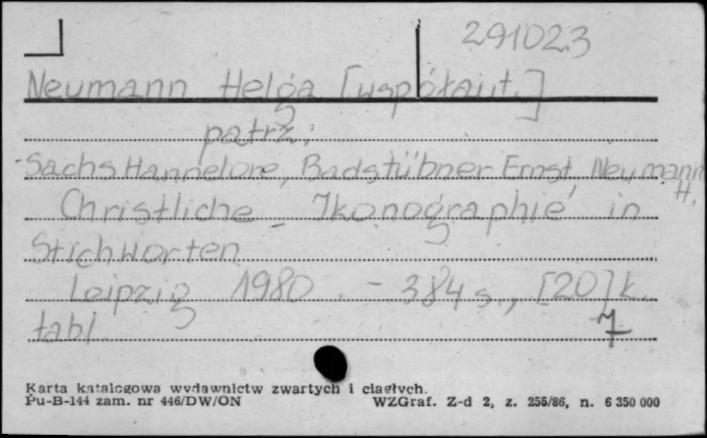 291023
Neumann Helga [współaut.]
patrz:
Sachs Hannelore, Badstübner Ernst, Neumann H.
Christliche Ikonographie in
Stichworten
Leipzig 1980. - 384 s., [20] k.
tabl.
7
Karta katalogowa wydawnictw zwartych i ciągłych.
Pu-B-144 zam. nr 446/DW/ON WZGraf. Z-d 2, z. 255/86, n. 6 350 000